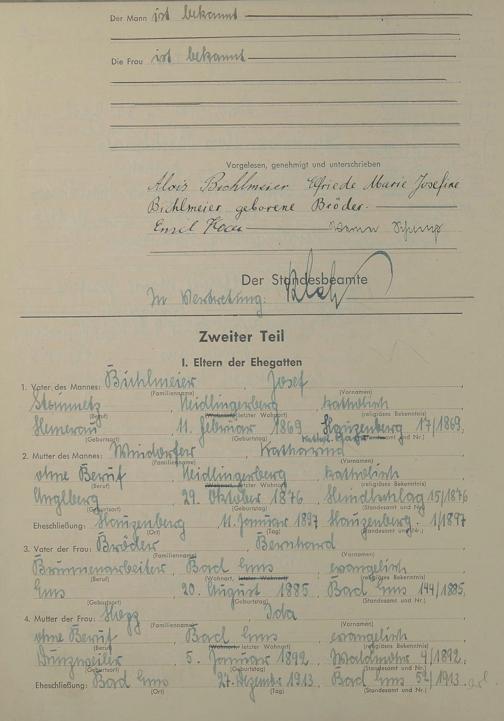 Der Mann ist bekannt
Die Frau ist bekannt
Vorgelesen, genehmigt und unterschrieben
Alois Bichlmeier Elfriede Marie Josefine
Bichlmeier geborene Bröder.
Emil
Der Standesbeamte
In Vertretung:
Zweiter Teil
I. Eltern der Ehegatten
1. Vater des Mannes: Bichlmeier Josef
(Familienname) (Vornamen)
Steinmetz Neidlingerberg katholisch
(Beruf) (Wohnort, letzter Wohnort) (religiöses Bekenntnis)
11. Februar 1869 Hauzenberg 17/1869,
(Geburtsort) (Geburtstag) (Standesamt und Nr.)
2. Mutter des Mannes: Windorfer Katharina
(Familienname) (Vornamen)
ohne Beruf Neidlingerberg katholisch
(Beruf) (Wohnort, letzter Wohnort) (religiöses Bekenntnis)
Anglberg 29. Oktober 1876 15/1876
(Geburtsort) (Geburtstag) (Standesamt und Nr.)
Eheschließung: Hauzenberg 11. Januar 1897 Hauzenberg 1/1897
(Ort) (Tag) (Standesamt und Nr.)
3. Vater der Frau: Bröder Bernhard
(Familienname) (Vornamen)
Brunnenarbeiter Bad Ems evangelisch
(Beruf) (Wohnort, letzter Wohnort) (religiöses Bekenntnis)
Ems 20. August 1885 Bad Ems 144/1885,
(Geburtsort) (Geburtstag) (Standesamt und Nr.)
4. Mutter der Frau: Ida
(Familienname) (Vornamen)
ohne Beruf Bad Ems evangelisch
(Beruf) (Wohnort, letzter Wohnort) (religiöses Bekenntnis)
Dunzweiler 5. Januar 1892 Waldmohr 4/1892,
(Geburtsort) (Geburtstag) (Standesamt und Nr.)
Eheschließung: Bad Ems 27. Dezember 1913 Bad Ems
(Ort) (Tag) (Standesamt und Nr.)